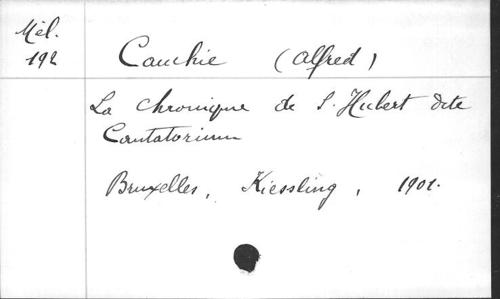 Mél.
192
Cauchie (Alfred)
La chronique de S. Hubert dite
Cantatorium
Bruxelles, Kiessling, 1901.